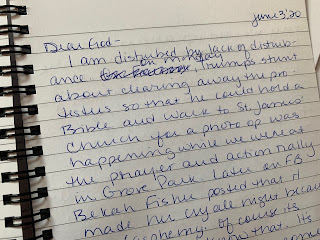 June 3 '20
Dear God -
I am disturbed by lack of disturb-
on Monday
ance Trump's stunt
about clearing away the pro-
testers so that he could hold a
Bible and walk to St. James'
Church for a photo op was
happening while we were at
the prayer and action rally
in Grove Park. Later on FB
Bekah Fisher posted that it
made her cry all night because
blasphemy. Of course its
know that. Its